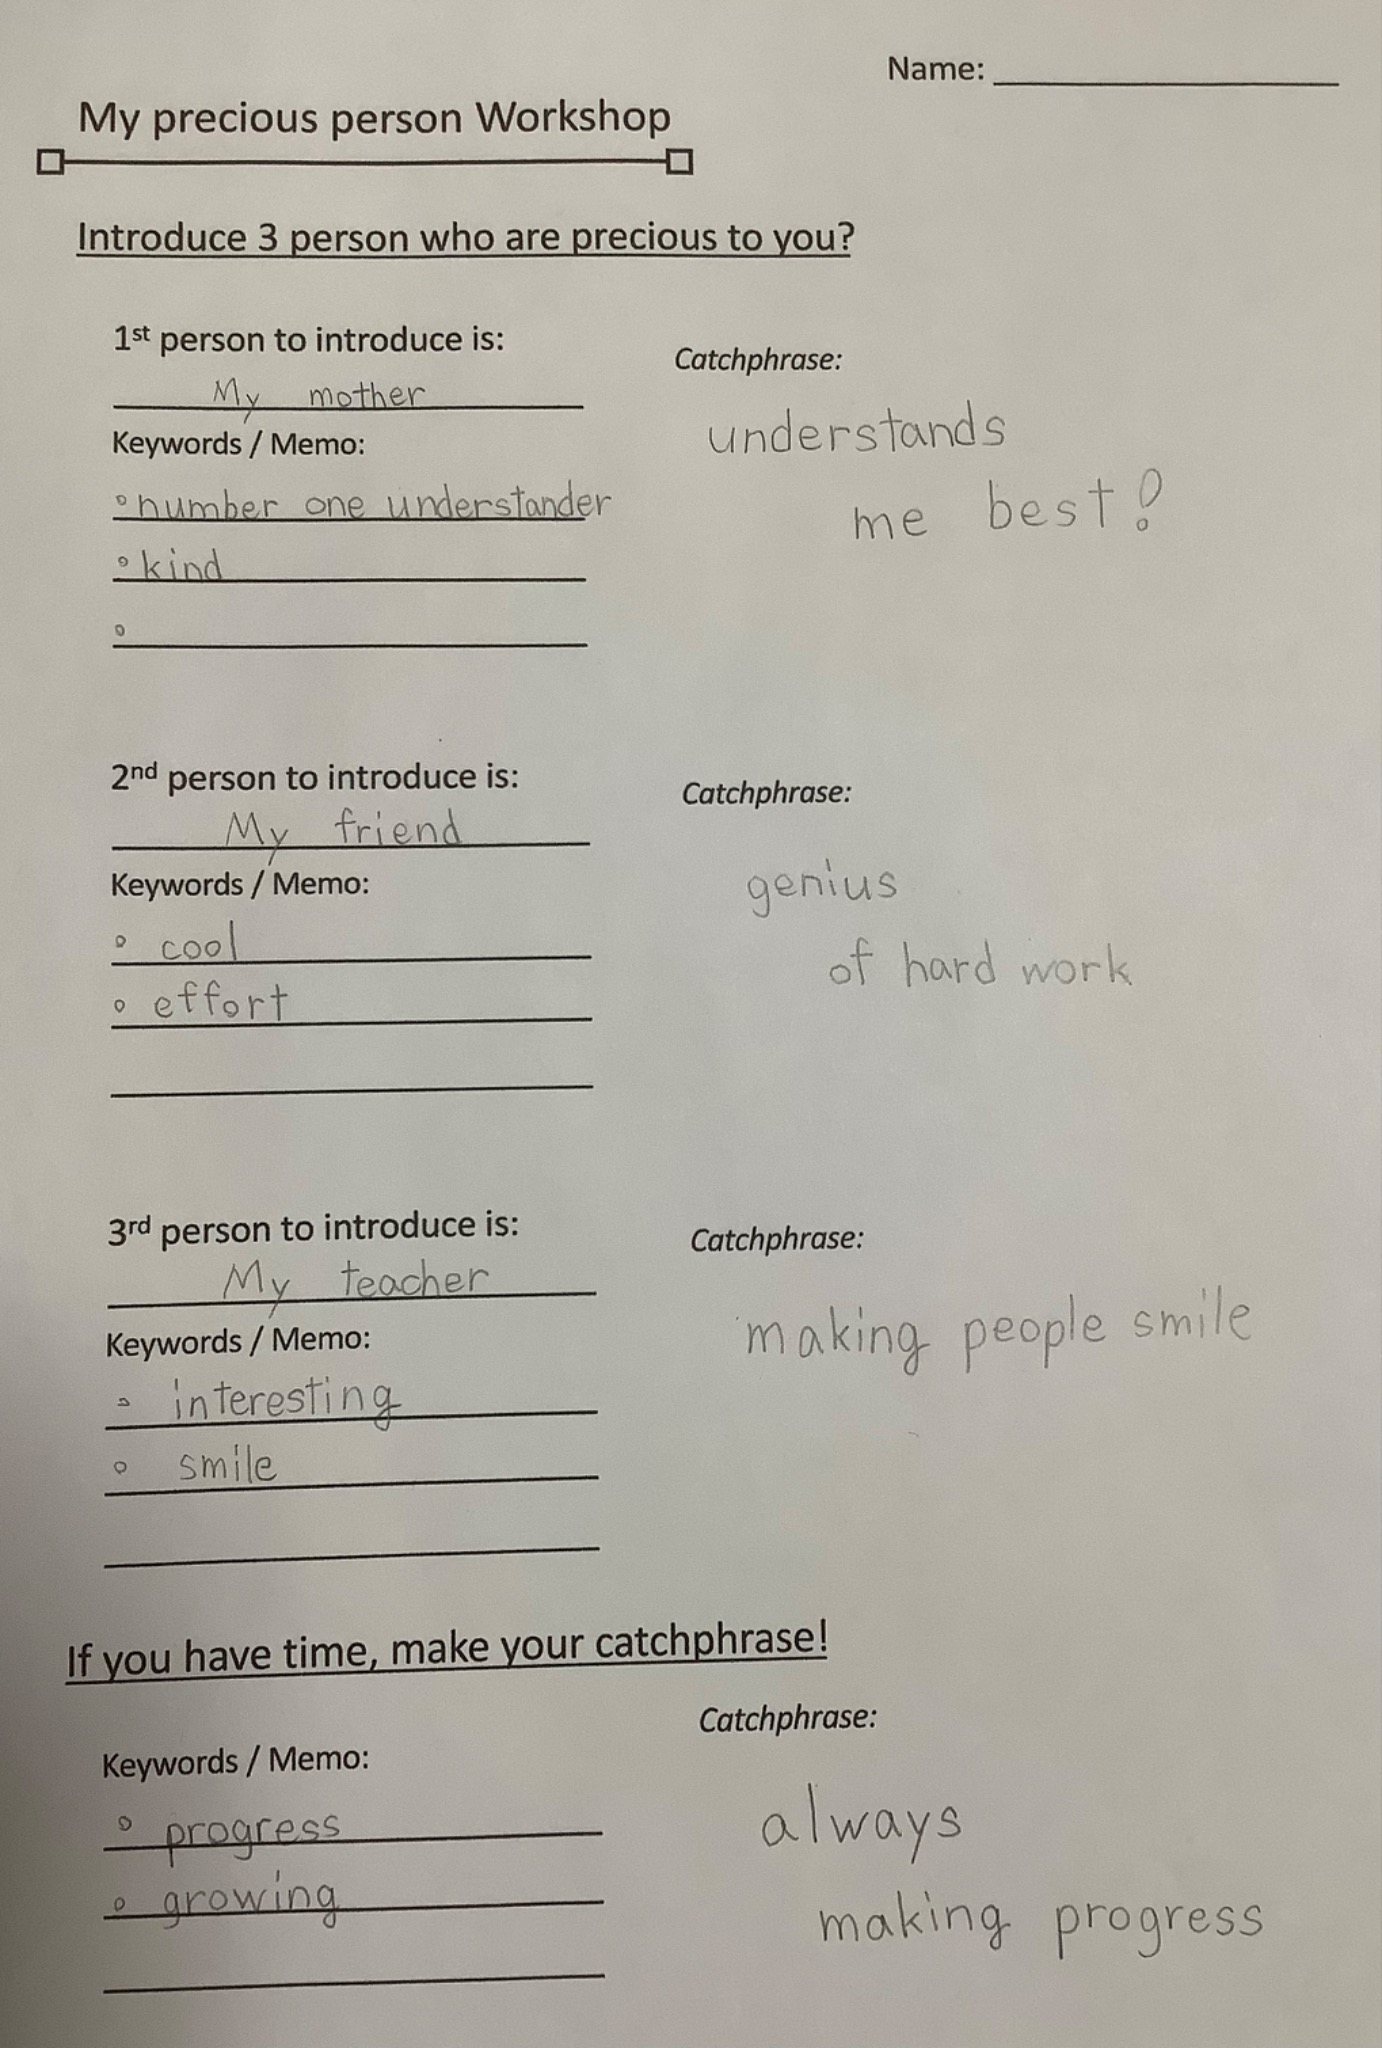 Name:
My precious person Workshop
Introduce 3 person who are precious to you?
1st person to introduce is:
My mother
Keywords / Memo:
number one understander
kind
Catchphrase:
understands
me best!
2nd person to introduce is:
My friend
Keywords / Memo:
cool
effort
Catchphrase:
genius
of hard work
3rd person to introduce is:
My teacher
Keywords / Memo:
interesting
smile
Catchphrase:
making people smile
If you have time, make your catchphrase!
Keywords / Memo:
progress
growing
Catchphrase:
always
making progress